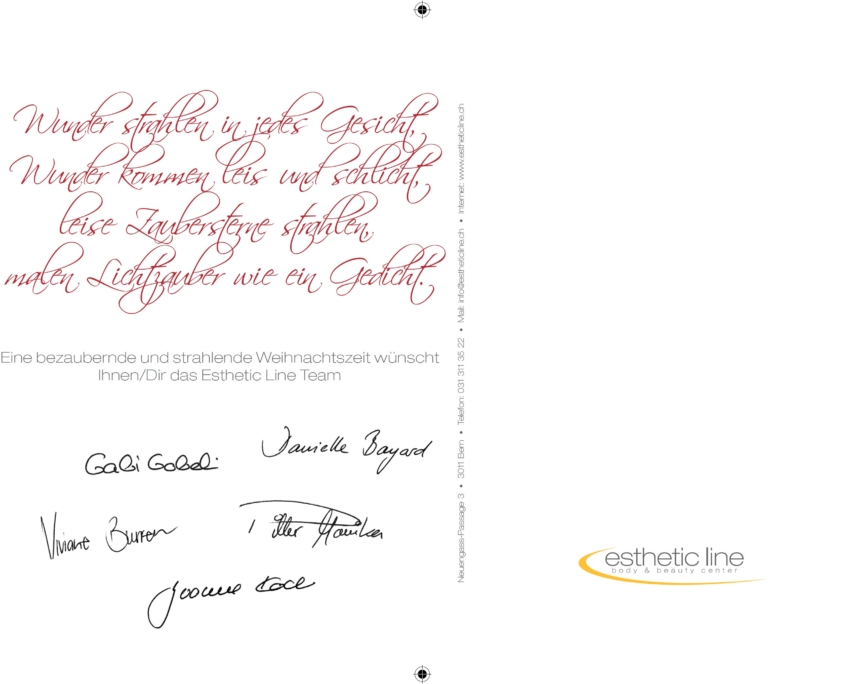 Wunder strahlen in jedes Gesicht,
Wunder kommen leis und schlicht,
leise Zaubersterne strahlen,
malen Lichtzauber wie ein Gedicht.
Eine bezaubernde und strahlende Weihnachtszeit wünscht
Ihnen/Dir das Esthetic Line Team
Danielle Bayard
Gabi Gobeli
Viviane Burren
Monika
Neuengass-Passage 3 • 3011 Bern • Telefon: 031 311 35 22 • Mail: info@estheticline.ch • Internet: www.estheticline.ch
esthetic line
body & beauty center